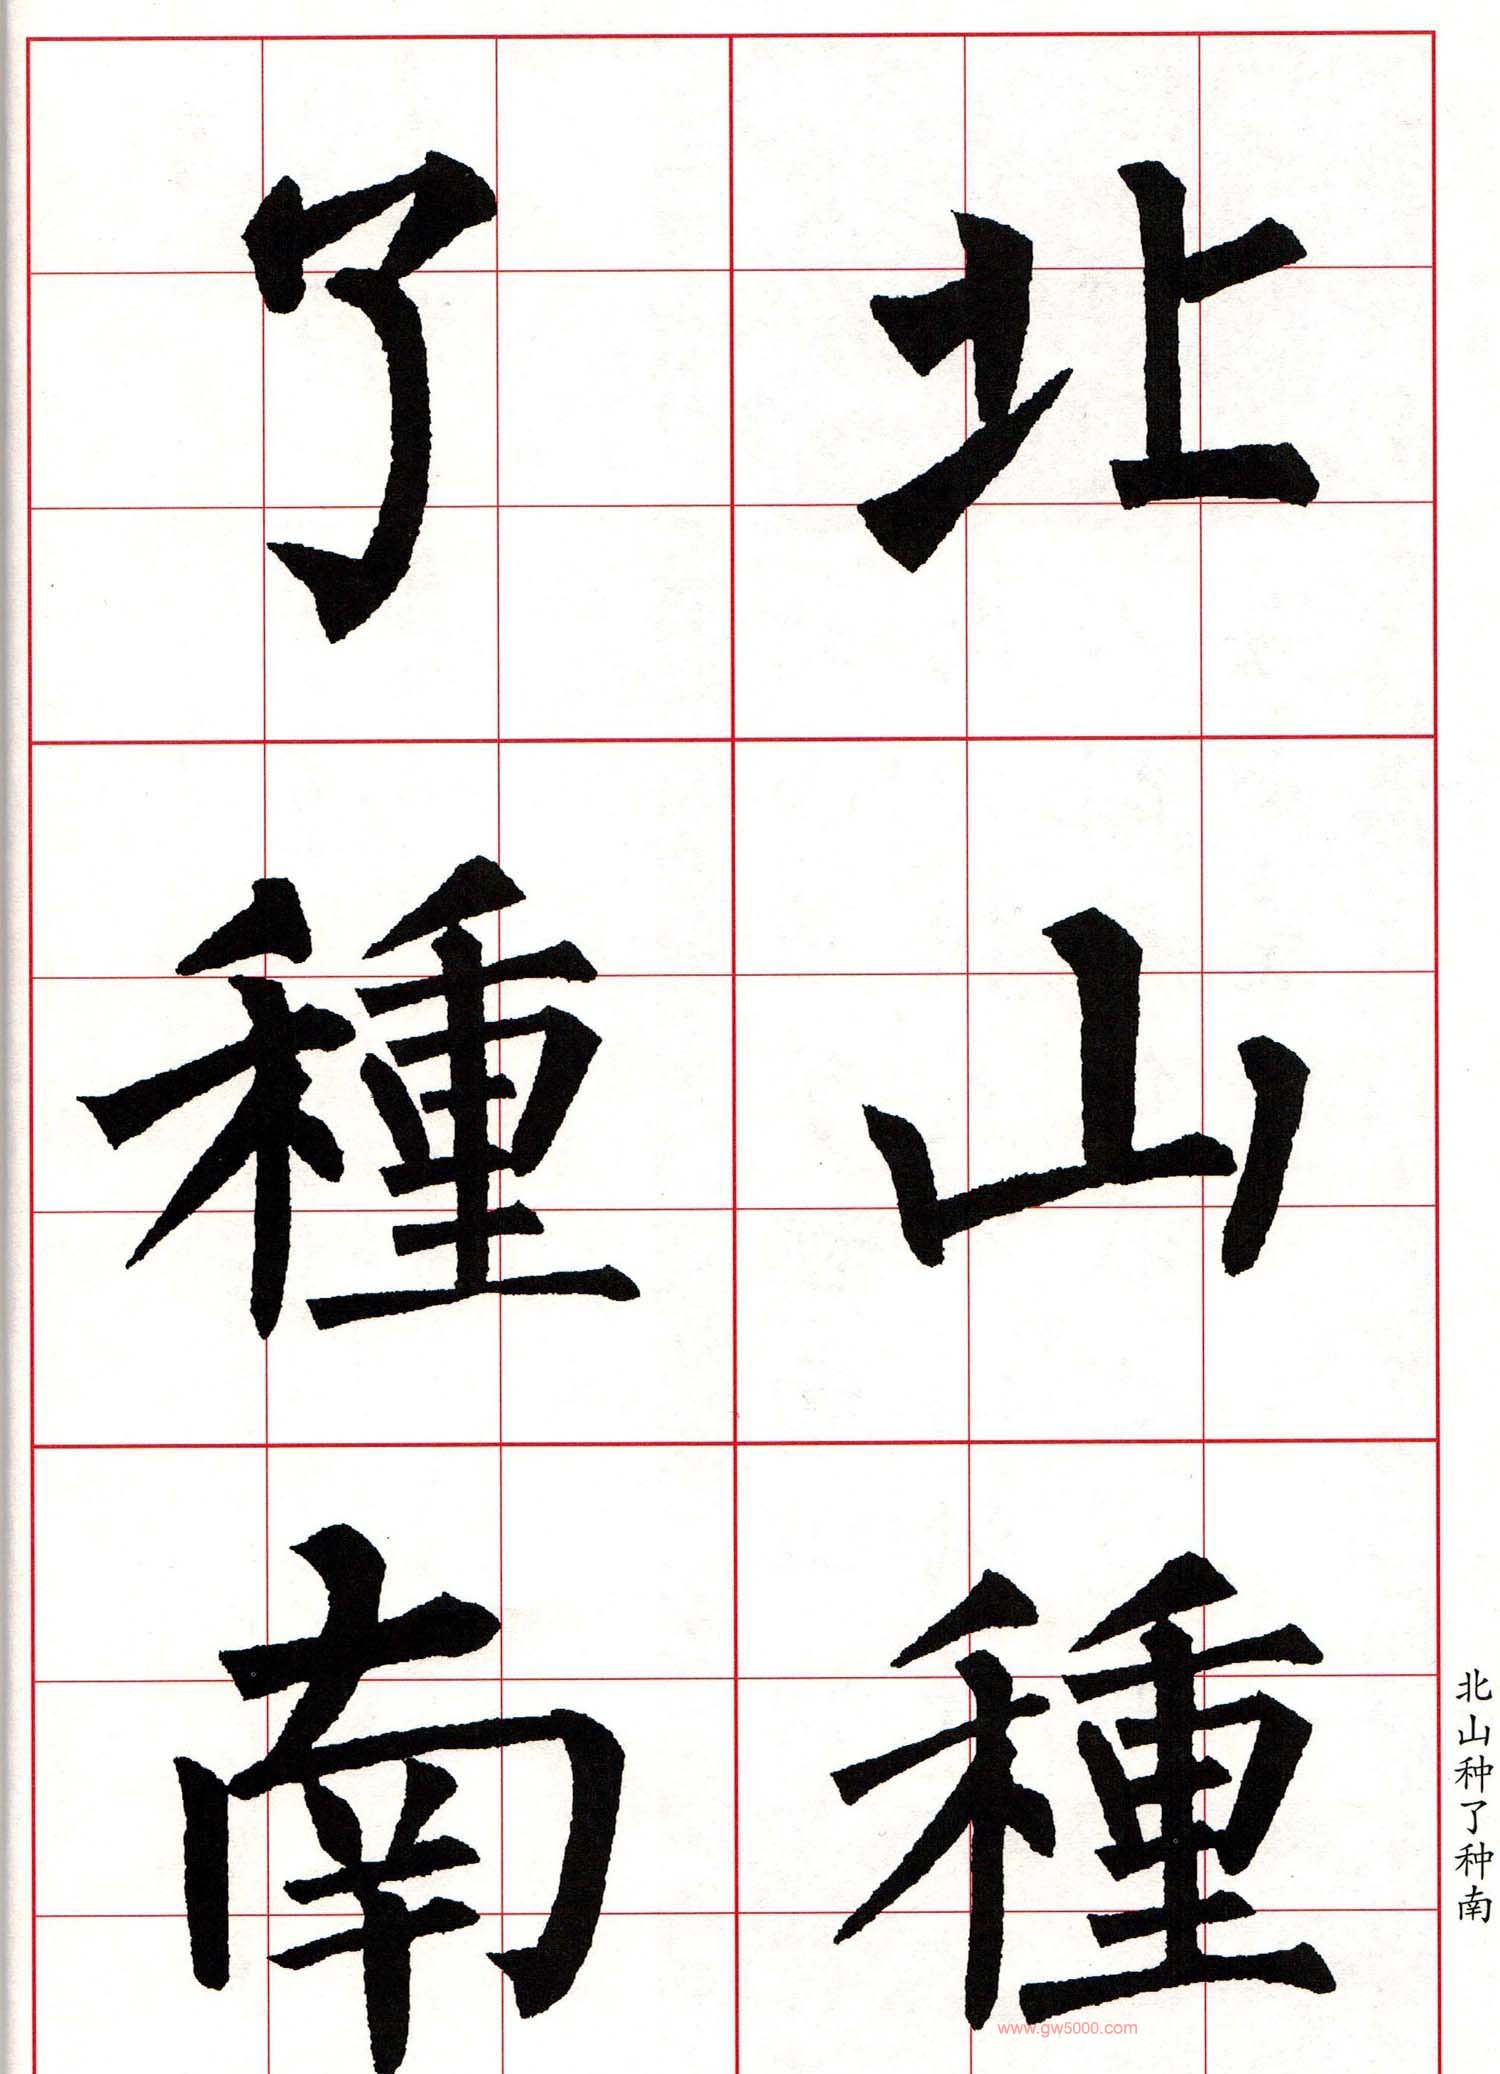 北山種
了種南
北山种了种南
www.gw5000.com